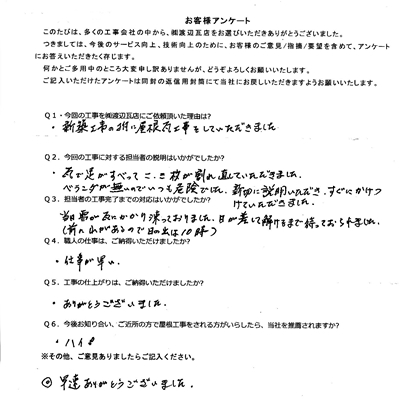 お客様アンケート
このたびは、多くの工事会社の中から、㈱渡辺瓦店をお選びいただきありがとうございました。
つきましては、今後のサービス向上、技術向上のために、お客様のご意見/指摘/要望を含めて、アンケート
にお答えいただきたく存じます。
何かとご多用中のところ大変申し訳ありませんが、どうぞよろしくお願いいたします。
ご記入いただけたアンケートは同封の返信用封筒にて当社にお戻しいただきますようお願いいたします。
Q1・今回の工事を㈱渡辺瓦店にご依頼頂いた理由は?
・新築工事の折に屋根瓦工事をしていただきました
Q2．今回の工事に対する担当者の説明はいかがでしたか?
・瓦で足がすべって 2枚が割れ直していただきました。
ベランダが無いのでいつも危険でした。親切に説明いただき、すぐにかけつ
けていただきました。
Q3．担当者の工事完了までの対応はいかがでしたか?
当日雪が瓦にかかり凍っておりました。日が差して解けるまで待っておられました。
(前に山があるので日の出は10時)
Q4．職人の仕事は、ご納得いただけましたか?
・仕事が早い。
Q5．工事の仕上がりは、ご納得いただけましたか?
・ありがとうございました。
Q6．今後お知り合い、ご近所の方で屋根工事をされる方がいらしたら、当社を推薦されますか?
・ハイ
※その他、ご意見ありましたらご記入ください。
◎ 早速ありがとうございました。